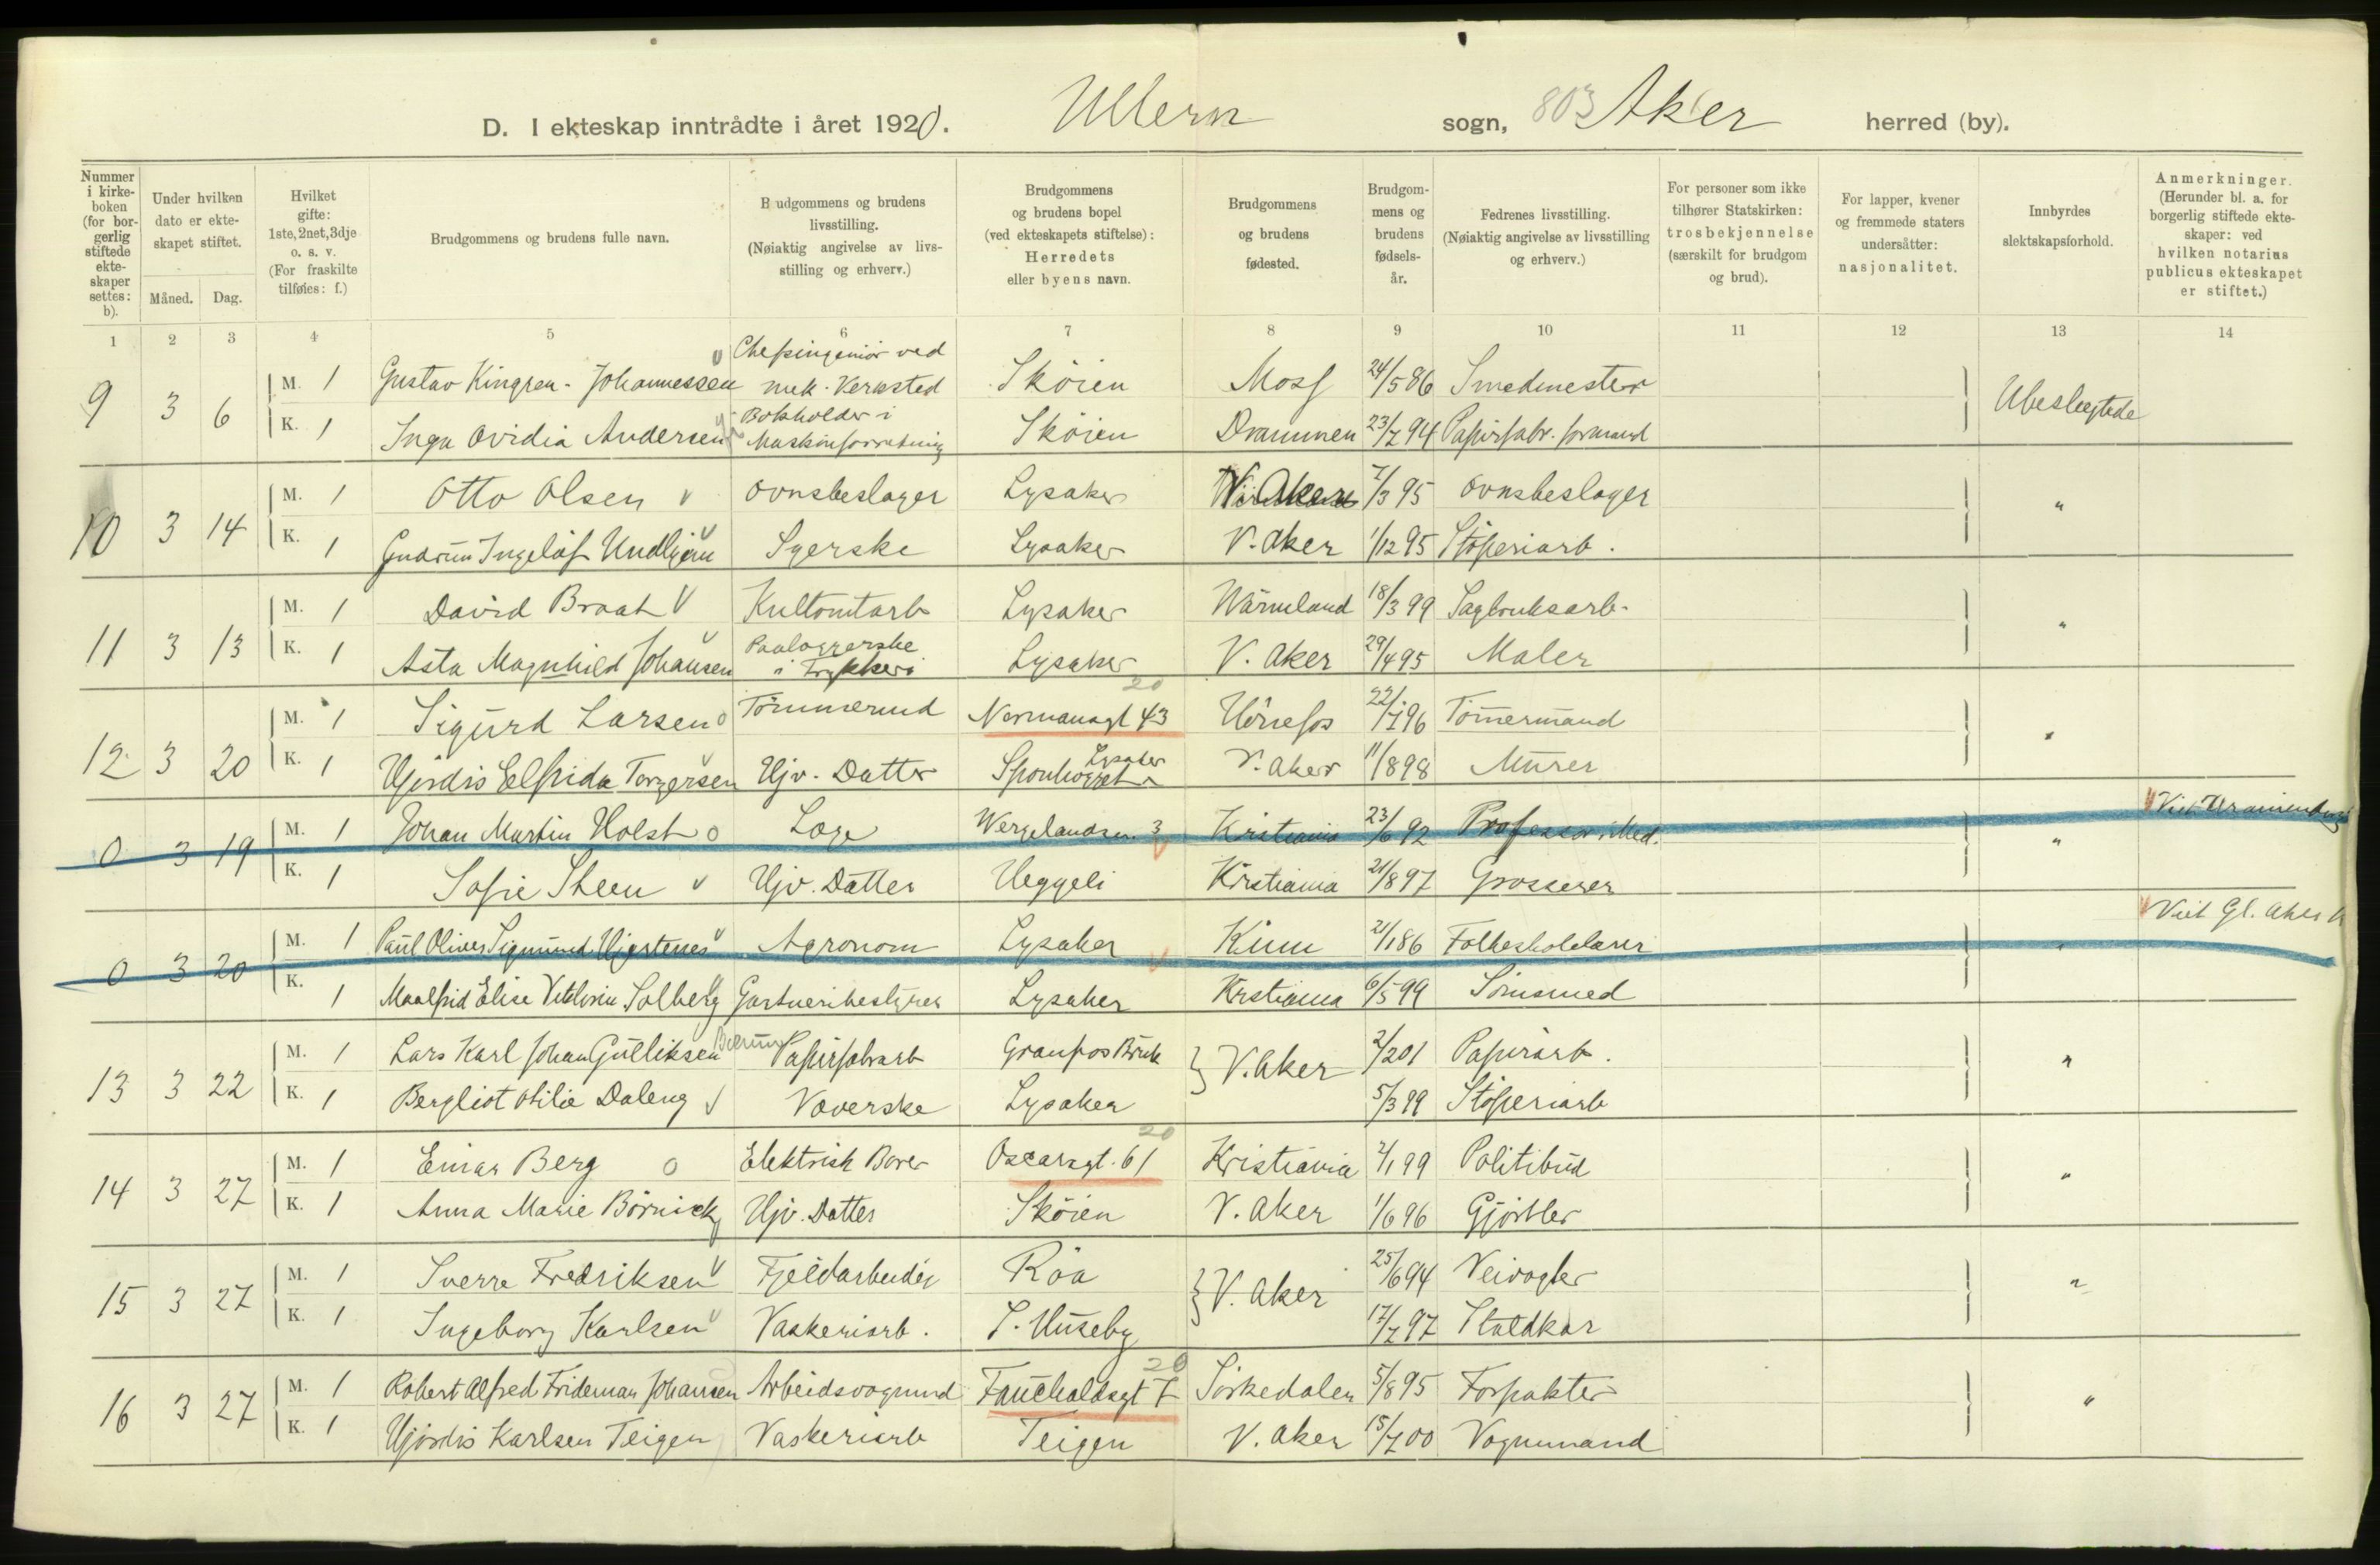 D. I ekteskap inntrådte i året 1920. Ullern sogn, 803 Aker herred (by).
Nummer i kirke-boken (for bor-gerlig stiftede ekte-skaper settes: b).
Under hvilken dato er ekte-skapet stiftet.
Måned. Dag.
Hvilket gifte: 1ste, 2net, 3dje o. s. v. (For fraskilte tilføies: f.)
Brudgommens og brudens fulle navn.
B udgommens og brudens livsstilling. (Nøiaktig angivelse av livs-stilling og erhverv.)
Brudgommens og brudens bopel (ved ekteskapets stiftelse): Herredets eller byens navn.
Brudgommens og brudens fødested.
Brudgom-mens og brudens fødsels-år.
Fedrenes livsstilling. (Nøiaktig angivelse av livsstilling og erhverv.)
For personer som ikke tilhører Statskirken: trosbekjennelse (særskilt for brudgom og brud).
For lapper, kvener og fremmede staters undersåtter: nasjonalitet.
Innbyrdes slektskapsforhold.
Anmerkninger. (Herunder bl. a. for borgerlig stiftede ekte-skaper: ved hvilken notarius publicus ekteskapet er stiftet.)
1 2 3 4 5 6 7 8 9 10 11 12 13 14
9 3 6 M. 1 Gustav Kingren - Johannessen Chefsingeniör ved mek. Verksted Sköien Moss 24/5 86 Smedmester Ubeslegtede
K. 1 Inga Ovidia Andersen Bokholder i Maskinforretning Sköien Drammen 23/7 94 Papirfabr. formand
10 3 14 M. 1 Otto Olsen v Ovnsbeslager Lysaker V. Aker 7/3 95 Ovnsbeslager "
K. 1 Gudrun Ingeløf Undlien Syerske Lysaker V. Aker 1/12 95 Støperiarb.
11 3 13 M. 1 David Braat v Kultomtarb Lysaker Wärmland 18/3 99 Sagbruksarb. "
K. 1 Asta Magnhild Johansen Paaloggerske i Trykkeri Lysaker V. Aker 29/4 95 Maler
12 3 20 M. 1 Sigurd Larsen o Tømmermd Normansgt 43 20 Hönefos 22/7 96 Tömmermand "
K. 1 Hjördis Elfrida Torgersen Hjv. Datter Lysaker V. Aker 11/8 98 Murer
0 3 19 M. 1 Johan Martin Holst o Læge Wergelandsv. 3 Kristiania 23/6 92 Professor i Med. "
K. 1 Sofie Steen v Hjv. Datter Heggeli Kristiania 21/8 97 Grosserer
0 3 20 M. 1 Paul Oliver Sigmund Hjertenes v Agronom Lysaker Kinn 21/1 86 Folkeskolelærer " Viet Gl. Aker K
K. 1 Maalfrid Elise Viktoria Solberg Gartneribestyrer Lysaker Kristiania 6/5 99 Lönsmed
13 3 22 M. 1 Lars Karl Johan Gulliksen Bærum Papirfabrarb Granfos Bruk } V. Aker 2/2 01 Papirarb. "
K. 1 Bergliot Otilie Daleng v Væverske Lysaker 5/3 99 Støperiarb
14 3 27 M. 1 Einar Berg o Elektrisk Borer Oscarsgt. 61 20 Kristiania 2/1 99 Politibud "
K. 1 Anna Marie Börnick Hjv. Datter Sköien V. Aker 1/6 96 Gjörtler
15 3 27 M. 1 Sverre Fredriksen v Fjeldarbeider Röa } V. Aker 25/6 94 Veivogter "
K. 1 Ingeborg Karlsen v Vaskeriarb. S. Huseby 17/7 97 Staldkar
16 3 27 M. 1 Robert Alfred Frideman Johansen Arbeidsvognmd Fauchaldsgt 7 20 Sörkedalen 5/8 95 Forpakter "
K. 1 Hjördis Karlsen Teigen Vaskeriarb Teigen V. Aker 15/7 00 Vognmand